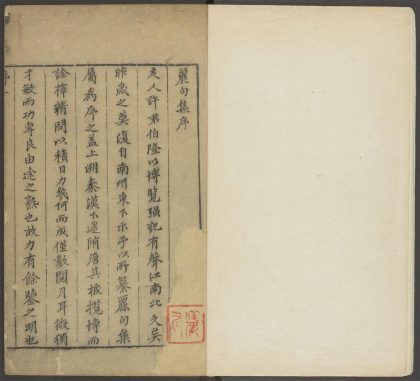 麗句集序
友人許君伯隆以博覽強記有聲江南北久矣
昨歲之莫復自南州東下示予以所纂麗句集
屬為序之蓋上溯秦漢下逮隋唐其披攬博而
詮擇精間以積日力幾何而成僅數閱月耳微獨
才敏而功專良由途之熟也故力有餘鑒之明也